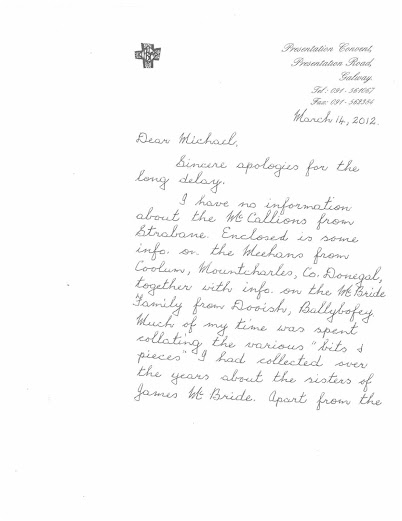 Presentation Convent,
Presentation Road,
Galway.
Tel: 091-561067
Fax: 091-569354
March 14, 2012.
Dear Michael,
Sincere apologies for the
long delay.
I have no information
about the McCallions from
Strabane. Enclosed is some
info. on the Meehans from
Coolum, Mountcharles, Co. Donegal,
together with info. on the McBride
Family from Dooish, Ballybofey
Much of my time was spent
collating the various "bits &
pieces" I had collected over
the years about the sisters of
James McBride. Apart from the